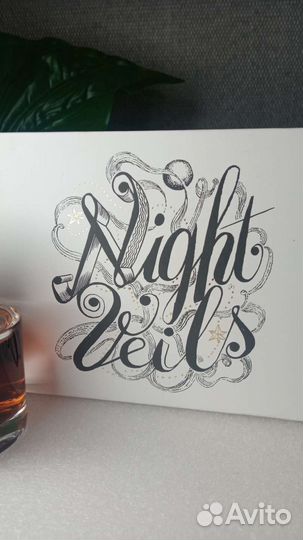 Night
Veils
Avito